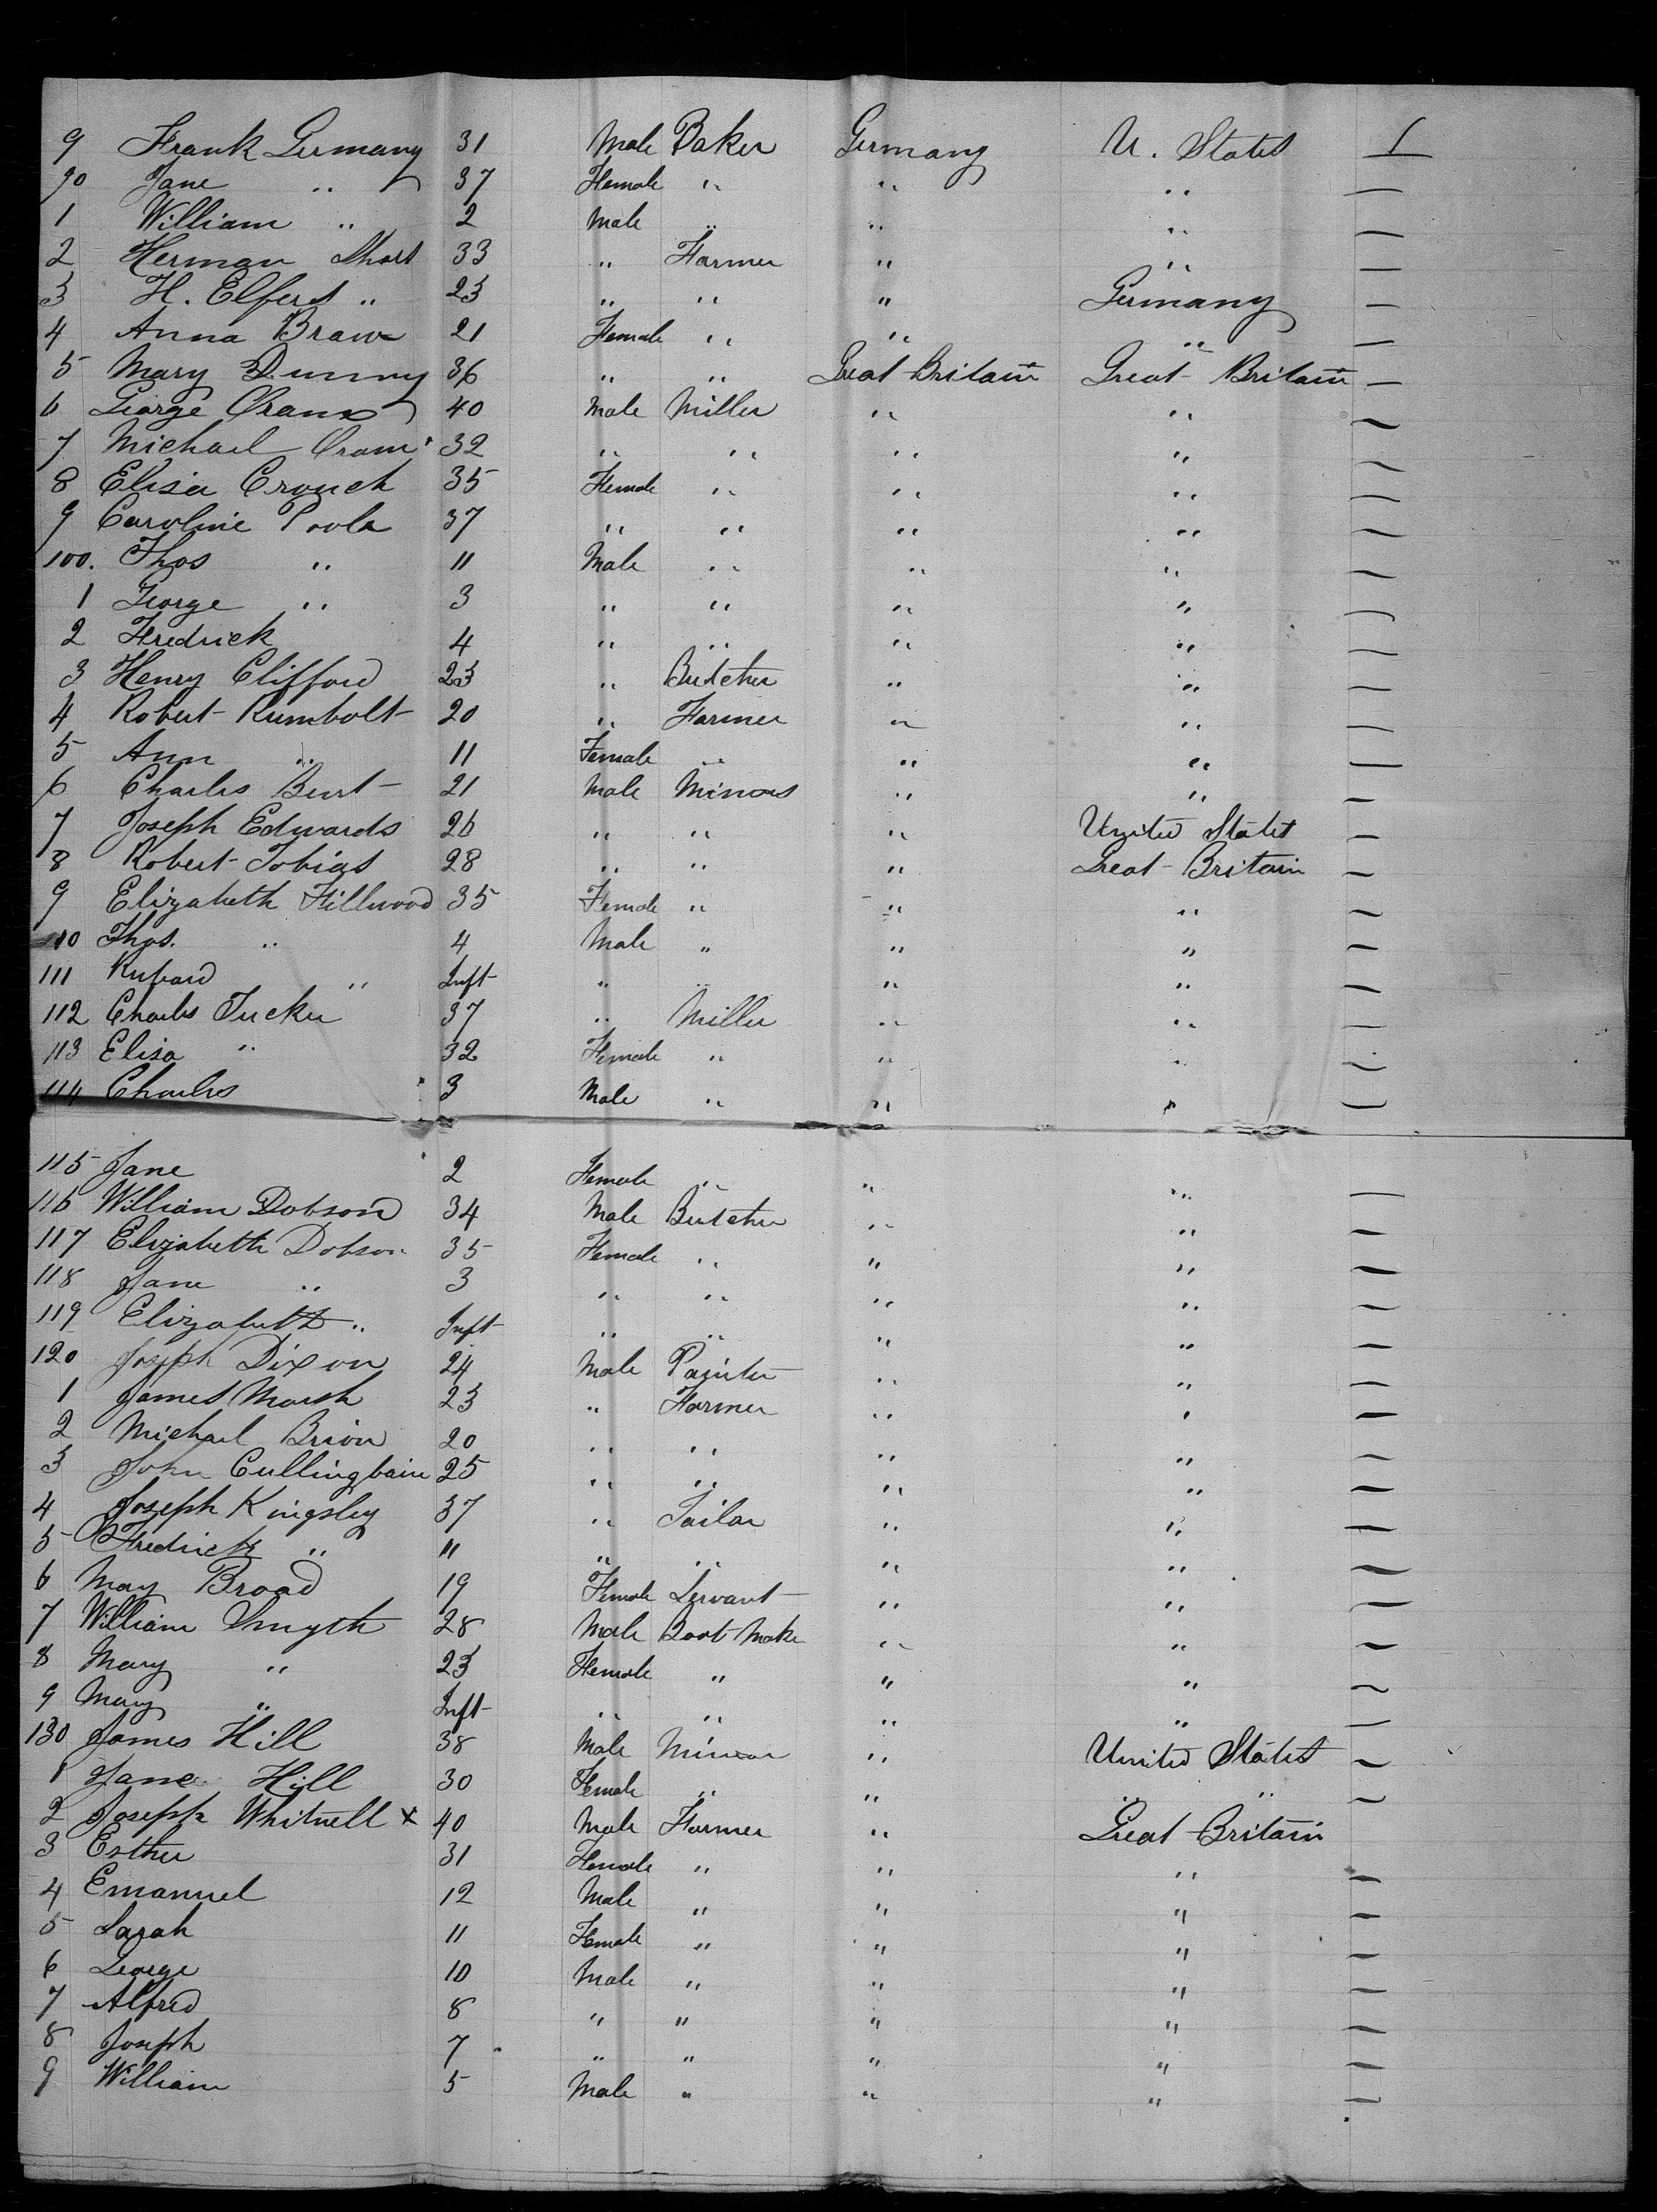 9 Frank Germany 31 Male Baker Germany U. States 1
90 Jane " 37 Female " " " —
1 William " 2 Male " " " —
2 Herman Short 33 " Farmer " " —
3 H. Elfers " 23 " " " Germany —
4 Anna Braw 21 Female " " " —
5 Mary Dunny 36 " " Great Britain Great Britain —
6 George Oram 40 Male Miller " " —
7 Michael Oram 32 " " " " —
8 Elisa Crouch 35 Female " " " —
9 Caroline Poole 37 " " " " —
100. Thos " 11 Male " " " —
1 George " 3 " " " " —
2 Fredrick 4 " " " " —
3 Henry Clifford 23 " Butcher " " —
4 Robert Rumbolt 20 " Farmer " " —
5 Ann " 11 Female " " " —
6 Charles Burt 21 Male Minors " " —
7 Joseph Edwards 26 " " " United States —
8 Robert Tobias 28 " " " Great Britain —
9 Elizabeth Fillwood 35 Female " " " —
10 Thos. " 4 Male " " " —
111 " Inft " " " " —
112 Charles Tucker 37 " Miller " " —
113 Elisa " 32 Female " " " —
114 Charles " 3 Male " " " —
115 Jane " 2 Female " " " —
116 William Dobson 34 Male Butcher " " —
117 Elizabeth Dobson 35 Female " " " —
118 Jane " 3 " " " " —
119 Elizabeth " Inft " " " " —
120 Joseph Dixon 24 Male Painter " " —
1 James Marsh 23 " Farmer " " —
2 Michael Brion 20 " " " " —
3 John Cullingbain 25 " " " " —
4 Joseph Kingsley 37 " Sailor " " —
5 Fredrick " 11 " " " " —
6 May Broad 19 Female Servant " " —
7 William Smyth 28 Male Boot Make " " —
8 Mary " 23 Female " " " —
9 Mary " Inft " " " " —
130 James Hill 38 Male Minor " United States —
1 Jane Hill 30 Female " " " —
2 Joseph Whitnell x 40 Male Farmer " Great Britain
3 Esther 31 Female " " " —
4 Emanuel 12 Male " " " —
5 Sarah 11 Female " " " —
6 George 10 Male " " " —
7 Alfred 8 " " " " —
8 Joseph 7 " " " " —
9 William 5 Male " " " —